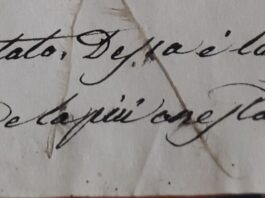 tato. Dessa è la
e la più onesta